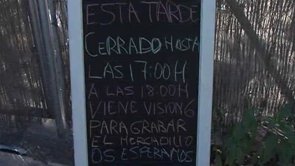 ESTA TARDE
CERRADO HASTA
LAS 17:00H
A LAS 18:00H
VIENE VISION6
PARA GRABAR
EL MERCADILLO
OS ESPERAMOS